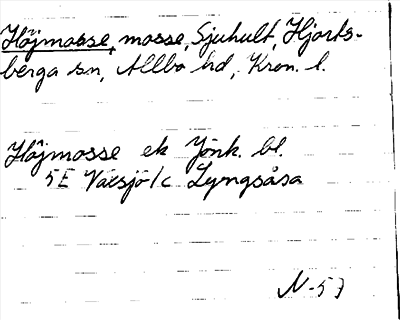 Höjmosse, mosse, Sjuhult, Hjorts-
berga sn, Allbo hd, Kron. l.
Höjmosse ek Jönk. bl.
5E Växsjö/c Lyngsåsa
N-57